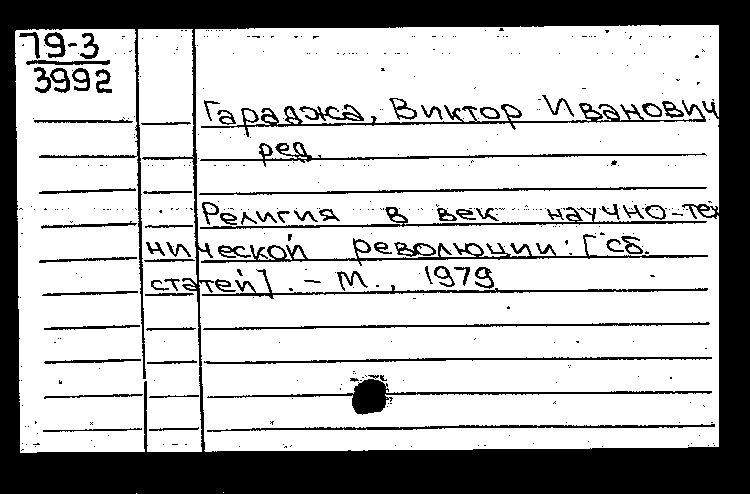 79-3
3992
Гараджа, Виктор Иванович
ред.
Религия в век научно-тех
нической революции: [Сб.
статей]. - М., 1979